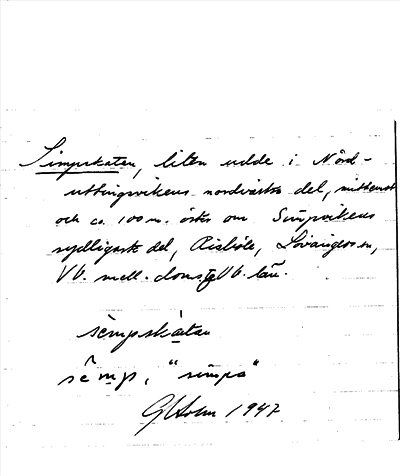 Simpskaten, liten udde i Nord-
uttingsvikens nordvästra del, mitt emot
och ca. 100 m. öster om Simpvikens
sydligaste del, Risböle, Lövångers sn,
Vb. mell. doms. Vb. län.
sèmpskàtan
sêmp, "simpa"
G Holm 1947